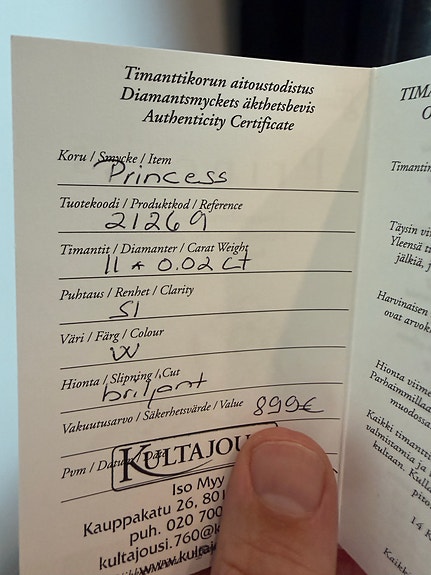 Timanttikorun aitoustodistus
Diamantsmyckets äkthetsbevis
Authenticity Certificate
Koru / Smycke / Item
Princess
Tuotekoodi / Produktkod / Reference
21269
Timantit / Diamanter / Carat Weight
11 * 0.02 ct
Puhtaus / Renhet / Clarity
SI
Väri / Färg / Colour
W
Hionta / Slipning / Cut
briljant
Vakuutusarvo / Säkerhetsvärde / Value 899€
Pvm / Datum / Date
KULTAJOU
Iso Myy
Kauppakatu 26, 801
puh. 020 700
kultajousi.760@k
www.kultaj
TIMA
O
Timantin
Täysin vi
Yleensä ti
jälkiä, j
Harvinaisen
ovat arvok
Hionta viime
Parhaimmillaa
muodossa
Kaikki timantti
valmistamia ja
kultaan. Kull
pito
14 K
Kaikki